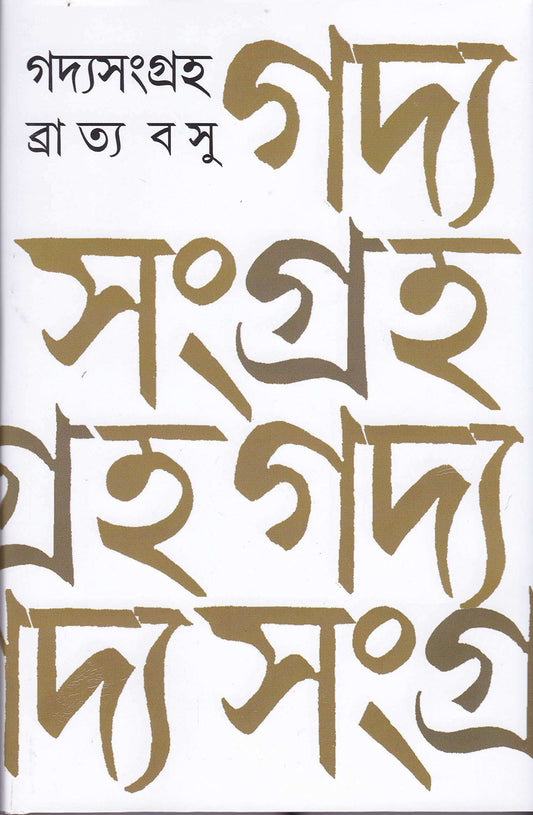 গদ্যসংগ্রহ
ব্রাত্য বসু
গদ্য
সংগ্রহ
গ্রহ গদ্য
গদ্য সংগ্র